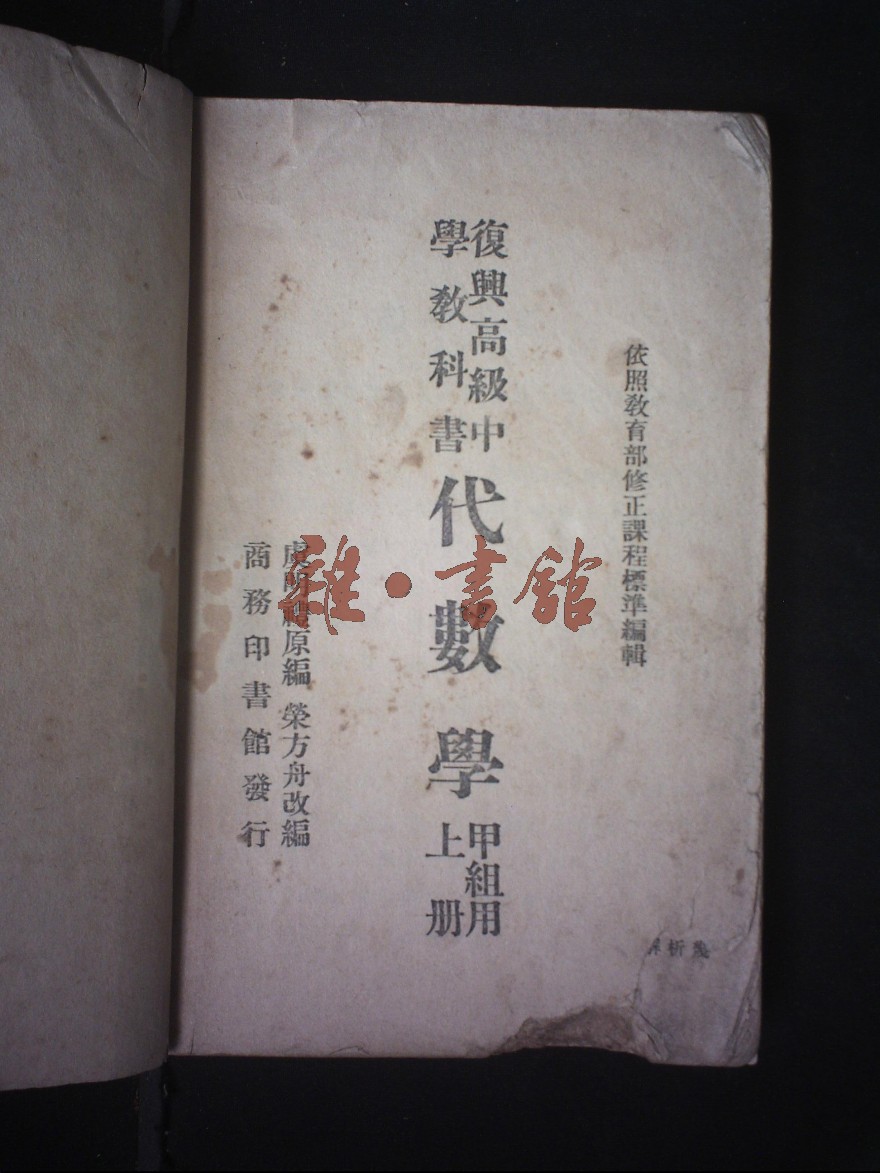 依照教育部修正課程標準編輯
復興高級中
學教科書
代數學
甲組用
上册
虞明禮原編 榮方舟改編
商務印書館發行
雜·書館
幾析解